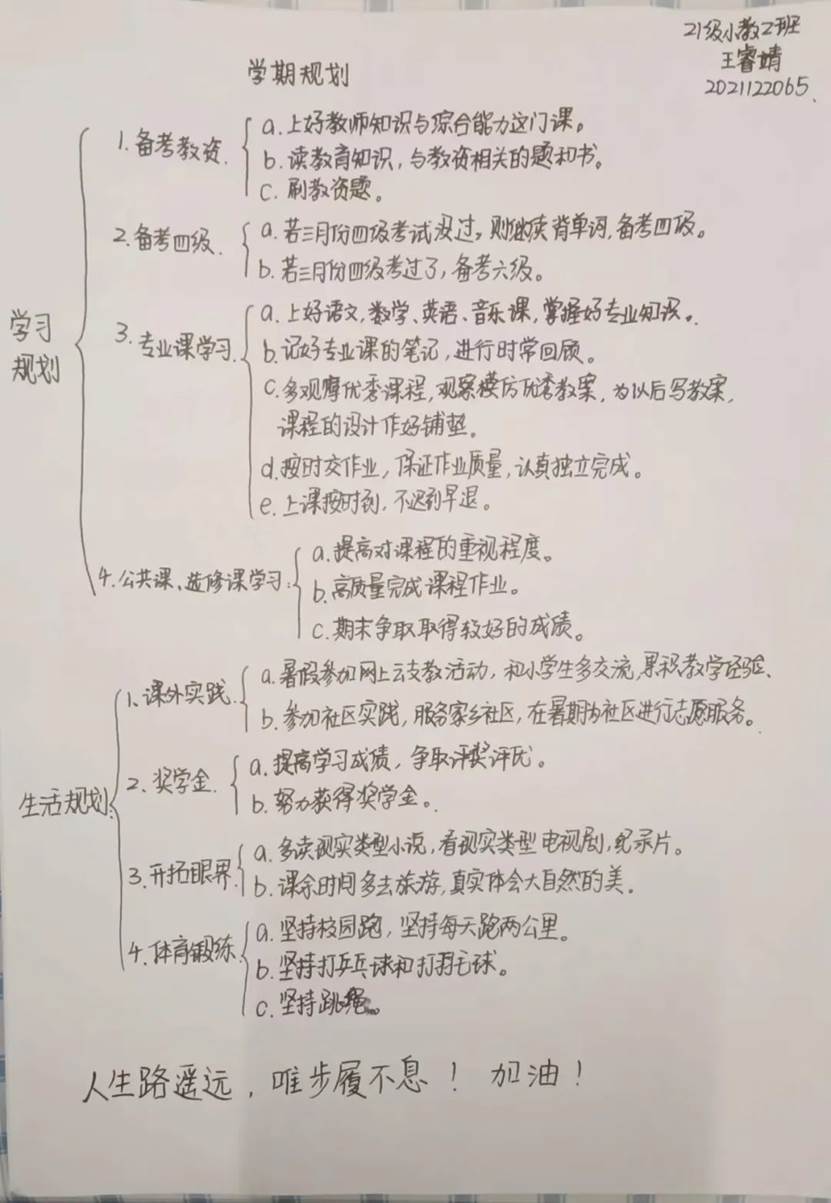 21级小教2班
王睿婧
2021122065.
学期规划
学习
规划
1.备考教资.
a.上好教师知识与综合能力这门课。
b.读教育知识，与教资相关的题和书。
c.刷教资题。
2.备考四级.
a.若三月份四级考试没过，则继续背单词,备考四级。
b.若三月份四级考过了,备考六级。
3.专业课学习.
a.上好语文,数学、英语、音乐课,掌握好专业知识。
b.记好专业课的笔记,进行时常回顾。
c.多观摩优秀课程,观察模仿优秀教案,为以后写教案,
课程的设计作好铺垫。
d.按时交作业,保证作业质量,认真独立完成。
e.上课按时到,不迟到早退。
4.公共课、选修课学习.
a.提高对课程的重视程度。
b.高质量完成课程作业。
c.期末争取取得较好的成绩。
生活规划.
1、课外实践.
a.暑假参加网上云支教活动，和小学生多交流,累积教学经验、
b.参加社区实践,服务家乡社区,在暑期为社区进行志愿服务。
2、奖学金.
a.提高学习成绩,争取评奖评优。
b.努力获得奖学金。
3.开拓眼界.
a.多读现实类型小说,看现实类型电视剧,纪录片。
b.课余时间多去旅游,真实体会大自然的美.
4.体育锻炼.
a.坚持校园跑,坚持每天跑两公里。
b.坚持打乒乓球和打羽毛球。
c.坚持跳绳。
人生路遥远,唯步履不息！加油！